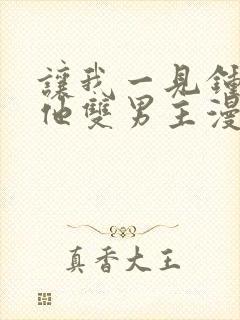 讓我一見鍾
他雙男主漫
真香大王